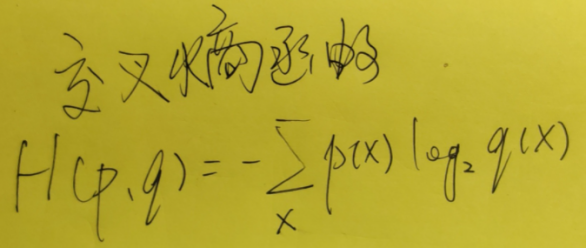 交叉熵函数
H(p,q) = -∑ₓ p(x) log₂ q(x)